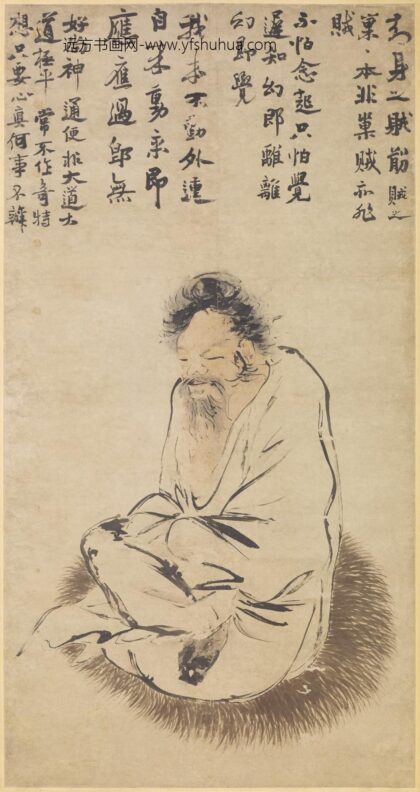 远方书画网-www.yfshuhua.com
身之賊賊之
巢本非巢賊亦非
賊
不怕念起只怕覺
遲知幻即離離
幻即覺
我本不動外
自來即
應應過即無
好神通便非大道大
道極平常不作奇特
想只要心真何事不辦